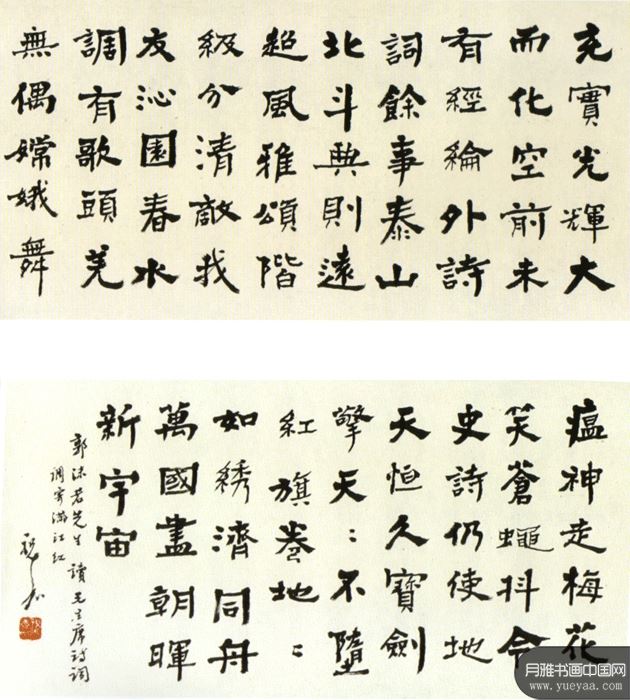 充實光輝大
而化空前未
有經綸外詩
詞餘事泰山
北斗典則遠
超風雅頌階
級分清敵我
友沁園春水
調有歌頭羌
無偶嫦娥舞
瘟神走梅花
笑蒼蠅抖令
史詩仍使地
天恒久寶劍
擎天〻不墮
紅旗卷地〻
如綉濟同舟
萬國盡朝暉
新宇宙
郭沫若先生讀毛主席詩詞
調寄滿江紅
月雅书画中国网
www.yueyaa.com